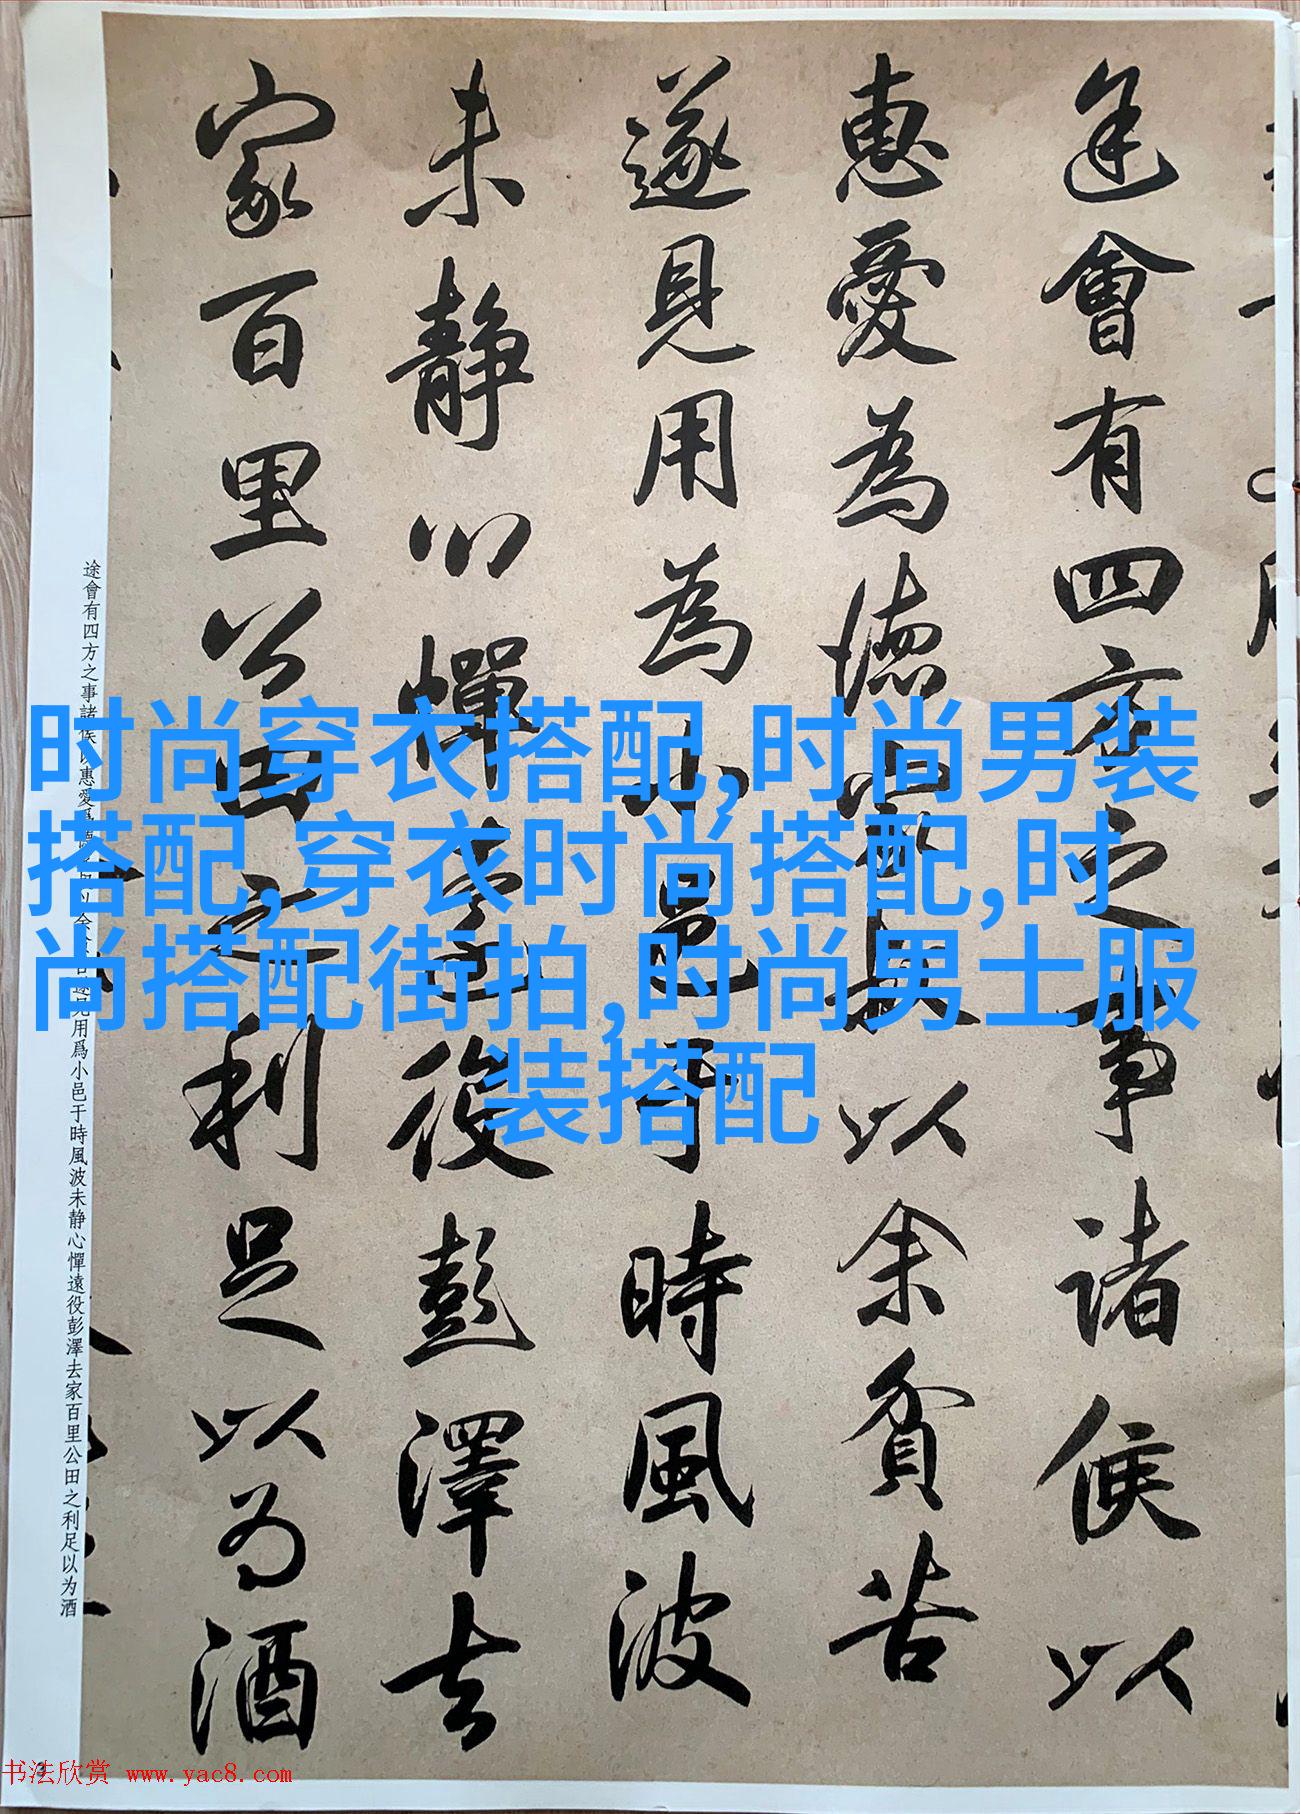 途會有四方之事諸侯以
惠愛為德家叔以余貧苦
遂見用為小邑于時風波
未靜心憚遠役彭澤去
家百里公田之利足以為酒
途會有四方之事諸侯以惠愛爲
用爲小邑于時風波未静心憚遠役彭澤去家百里公田之利足以为酒
时尚穿衣搭配,时尚男装
搭配,穿衣时尚搭配,时
尚搭配街拍,时尚男士服
装搭配
书法欣赏 www.yac8.com